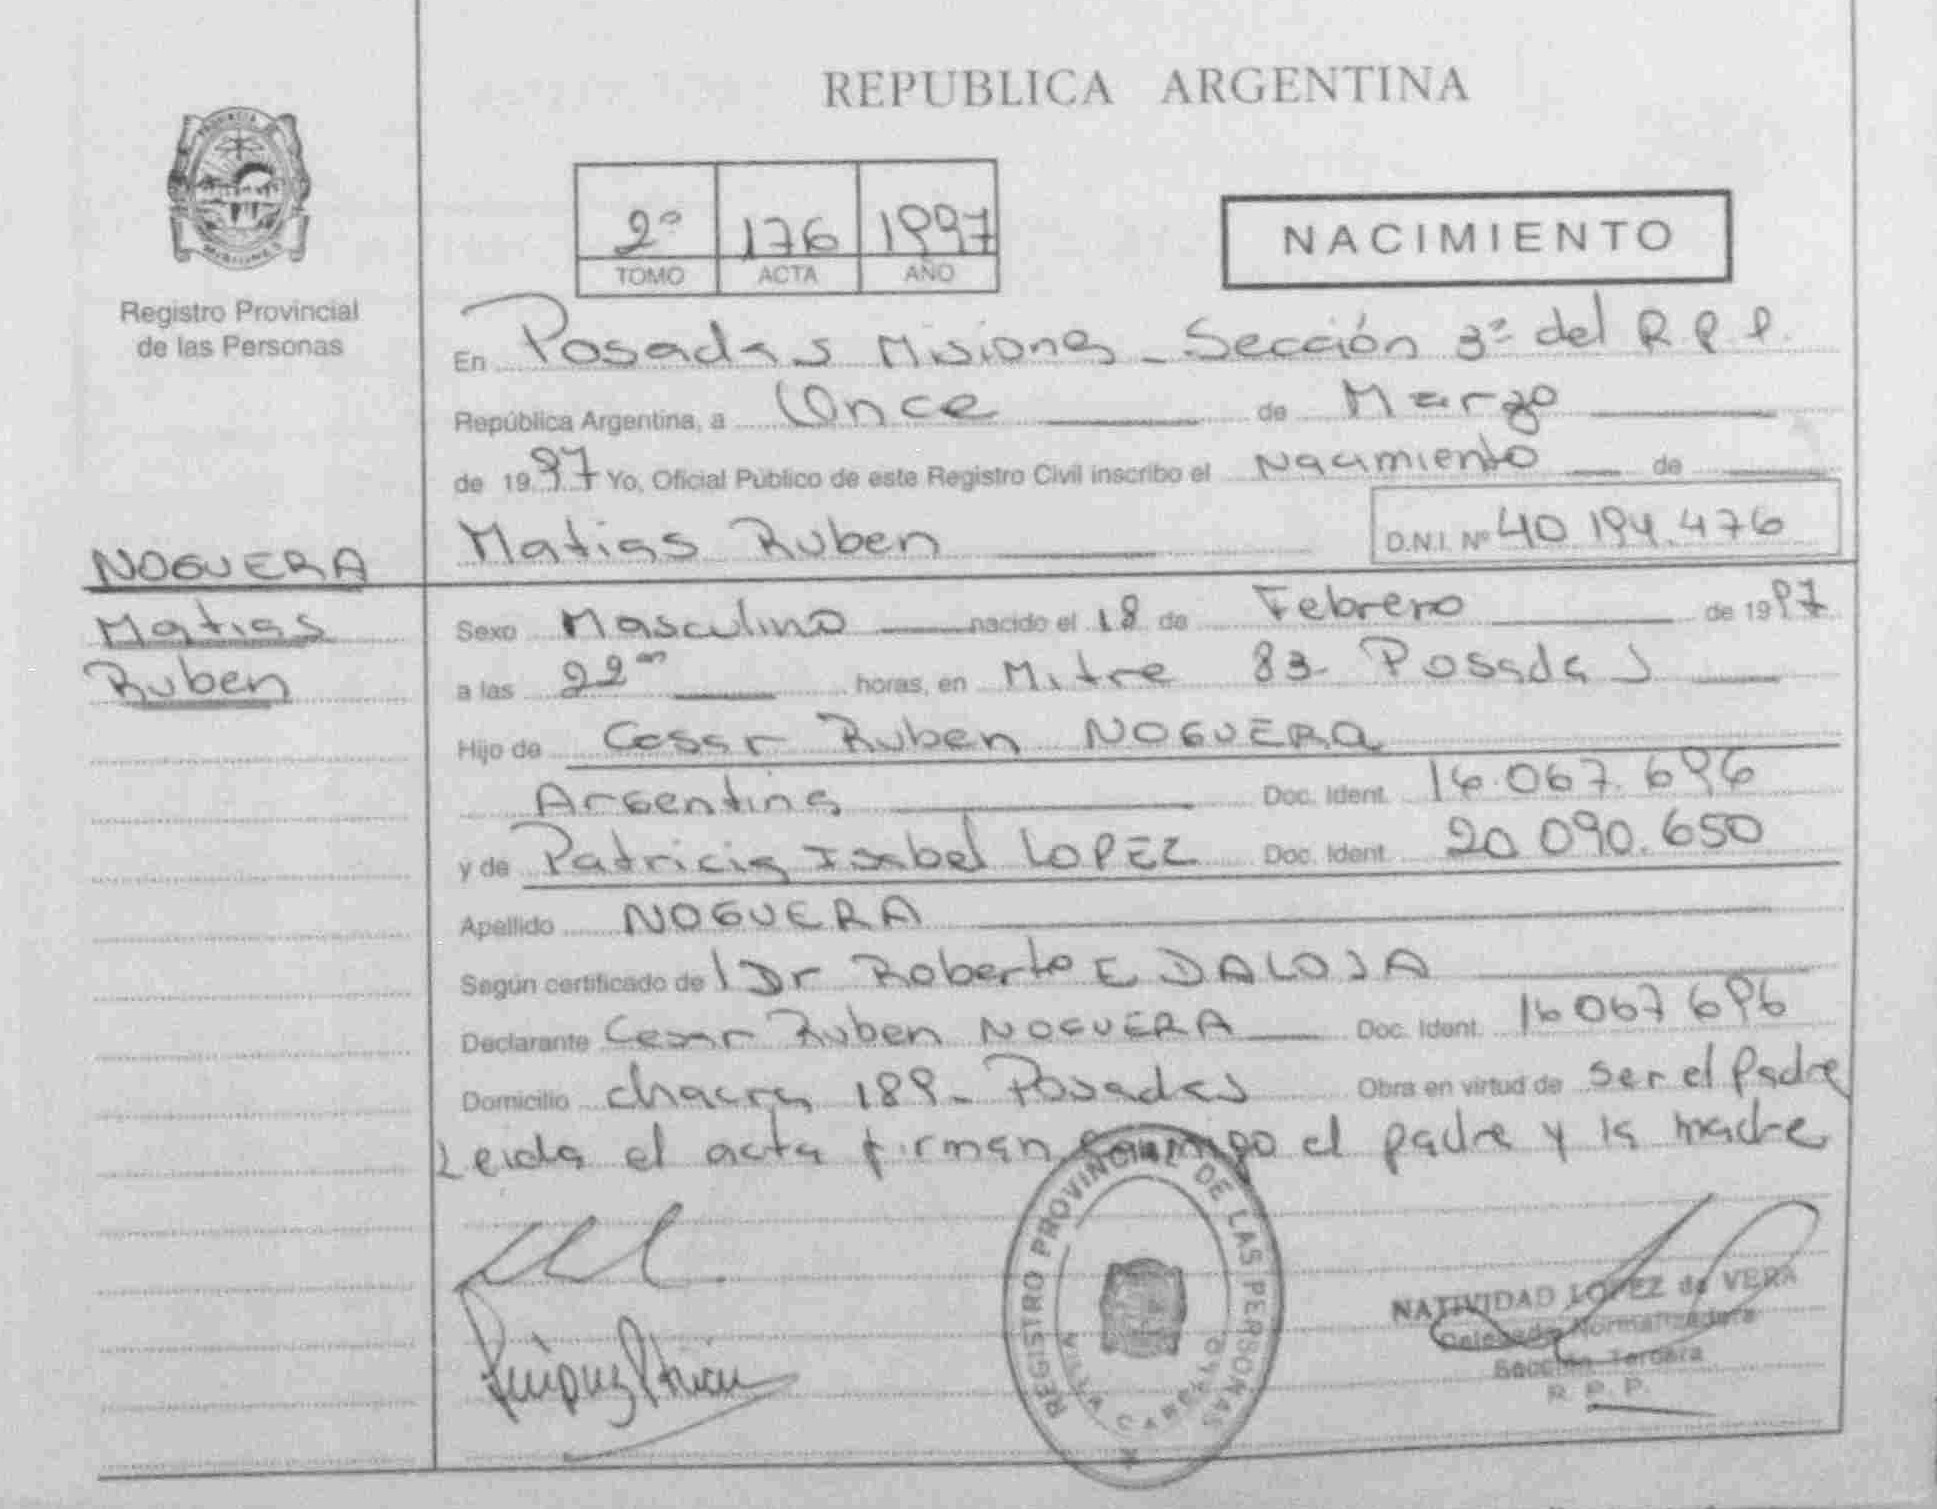 REPUBLICA ARGENTINA
PROVINCIA DE
MISIONES
Registro Provincial
de las Personas
2º 176 1997
TOMO ACTA AÑO
NACIMIENTO
En Posadas Misiones - Sección 3ª del R.P.P.
República Argentina, a Once de Marzo
de 1997 Yo, Oficial Público de este Registro Civil inscribo el Nacimiento de
Matias Ruben D.N.I. Nº 40 194.476
NOGUERA
Matias
Ruben
Sexo Masculino nacido el 18 de Febrero de 1997
a las 22 horas, en Mitre 83 - Posadas
Hijo de Cesar Ruben NOGUERA
Argentina Doc. Ident. 16.067.696
y de Patricia Isabel LOPEZ Doc. Ident. 20.090.650
Apellido NOGUERA
Según certificado de Dr Roberto E DALOIA
Declarante Cesar Ruben NOGUERA Doc. Ident. 16067696
Domicilio chacra 189 - Posadas Obra en virtud de ser el padre
Leida el acta firman conmigo el padre y la madre
REGISTRO PROVINCIAL DE LAS PERSONAS
NATIVIDAD LOPEZ de VERA
Delegada Normalizadora
Sección Tercera
R. P. P.